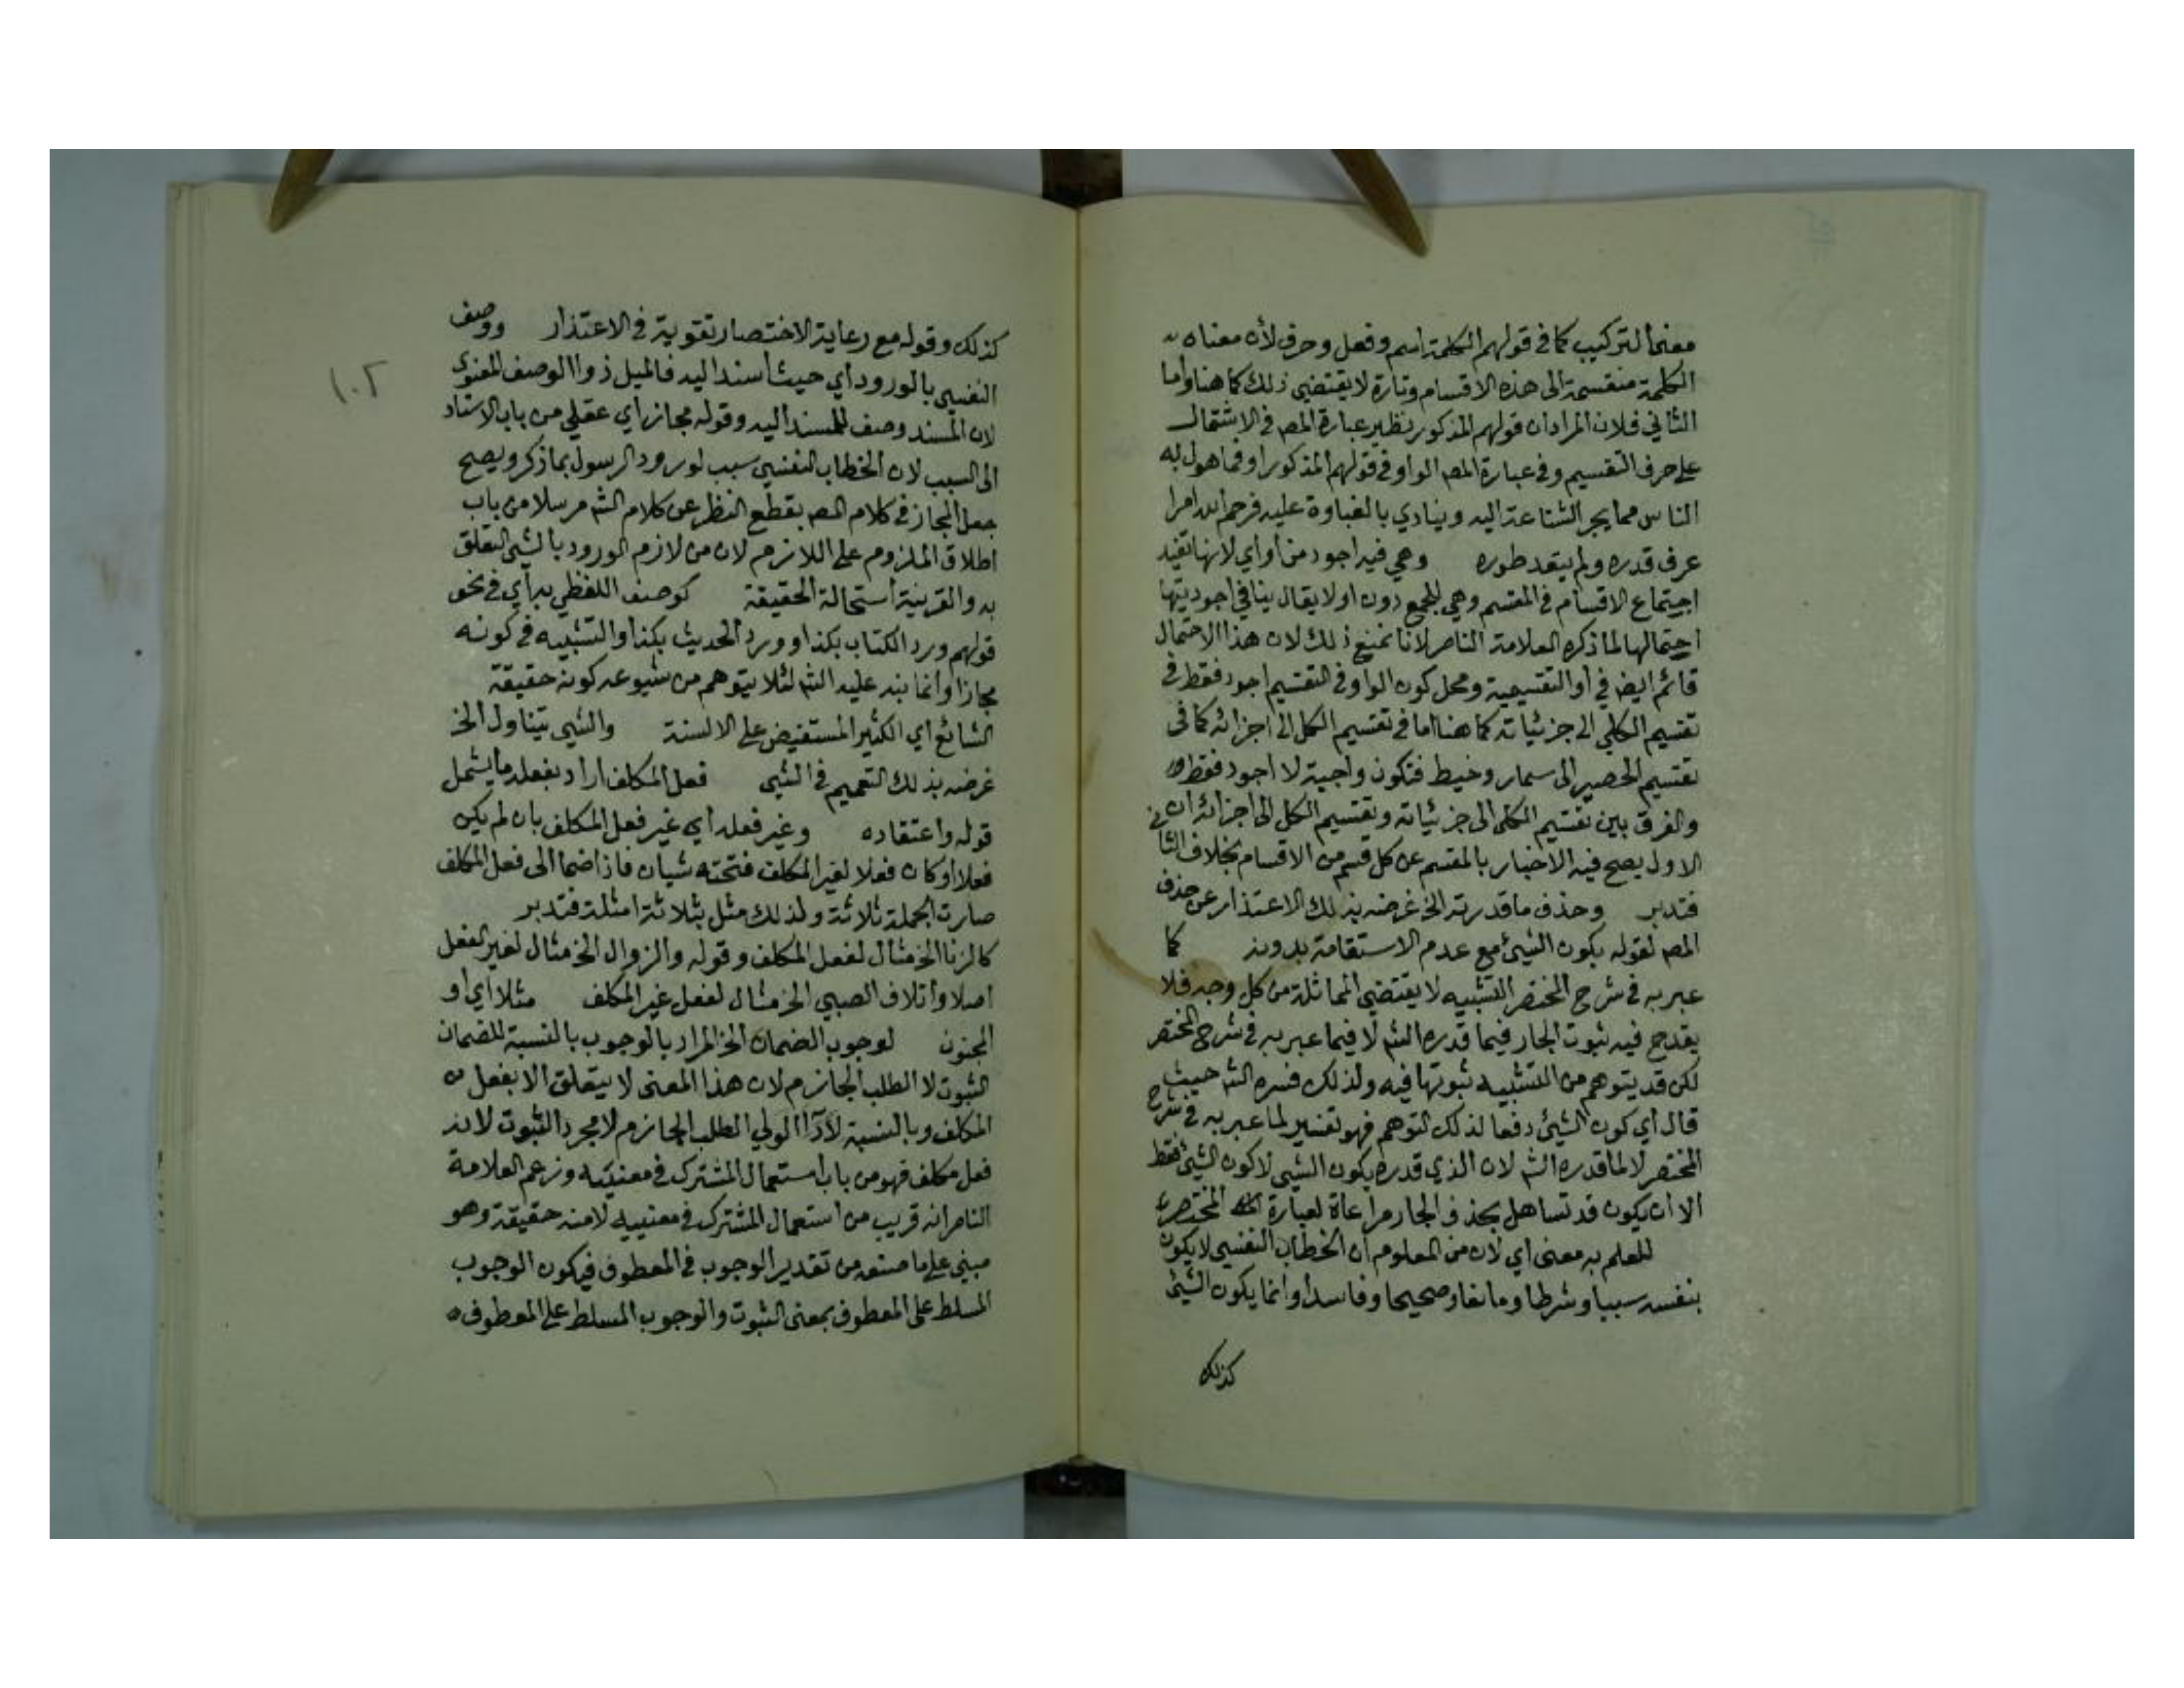 معنى التركيب كما في قولهم الكلمة اسم وفعل وحرف لأن معناه
الكلمة منقسمة الى هذه الاقسام وتارة لا يقتضي ذلك كما هنا واما
الثاني فلان المراد ان قولهم المذكور نظير عبارة المصـ في الاشتمال
على حرف التقسيم وفي عبارة المصـ الواو في قولهم المذكور او فما هول به
الناس مما يجر الشناعة اليه وينادي بالغباوة عليه فرحم الله امرا
عرف قدره ولم يتعد طوره وهي فيه اجود من أو أي لانها تفيد
اجتماع الاقسام في المقسم وهي للجمع دون او لا يقال ينافي اجوديتها
احتمالها لما ذكره العلامة الناصر لانا نمنع ذلك لان هذا الاحتمال
قائم ايضا في أو التقسيمية ومحل كون الواو في التقسيم اجود فقط في
تقسيم الكلي الى جزئياته كما هنا اما في تقسيم الكل الى اجزائه كما في
تقسيم الحصير الى سمار وخيط فتكون واجبة لا اجود فقط
والفرق بين تقسيم الكلي الى جزئياته وتقسيم الكل الى اجزائه ان
الاول يصح فيه الاخبار بالمقسم عن كل قسم من الاقسام بخلاف الثاني
فتدبر وحذف ما قدرته الخ غرضه بذلك الاعتذار عن حذف
المصـ لقوله بكون الشيئ مع عدم الاستقامة بدونه كما
عبر به في شرح المختصر التشبيه لا يقتضي المماثلة من كل وجه فلا
يقدح فيه ثبوت الجار فيما قدره الشـ لا فيما عبر به في شرح المختصر
لكن قد يتوهم من التشبيه ثبوتها فيه ولذلك فسره الشـ حيث
قال أي كون الشيئ دفعا لذلك التوهم فهو تفسير لما عبر به في شرح
المختصر لا لما قدره الشـ لان الذي قدره بكون الشيى لا كون الشيئ فقط
الا ان يكون قد تساهل بحذف الجار مراعاة لعبارة المختصر
للعلم به معنى أي لان من المعلوم ان الخطاب النفسي لا يكون
بنفسه سببا وشرطا ومانعا وصحيحا وفاسدا وانما يكون الشيئ
كذلك
١٠٢
كذلك وقوله مع رعاية الاختصار تقوية في الاعتذار ووصف
النفسي بالورود أي حيث أسند اليه فالميل ذو الوصف المعنوي
لان المسند وصف للمسند اليه وقوله مجاز أي عقلي من باب الاسناد
الى السبب لان الخطاب النفسي سبب لورود الرسول بما ذكر ويصح
جعل المجاز في كلام المصـ بقطع النظر عن كلام الشـ مرسلا من باب
اطلاق الملزوم على اللازم لان من لازم الورود بالشيى التعلق
به والقرينة استحالة الحقيقة كوصف اللفظي به أي في نحو
قولهم ورد الكتاب بكذا وورد الحديث بكذا والتشبيه في كونه
مجازا وانما نبه عليه الشـ لئلا يتوهم من شيوعه كونه حقيقة
الشائع أي الكثير المستفيض على الالسنة والشيى يتناول الخ
غرضه بذلك التعميم في الشيى فعل المكلف اراد بفعله ما يشمل
قوله واعتقاده وغير فعله أي غير فعل المكلف بان لم يكن
فعلا أو كان فعلا لغير المكلف فتحته شيان فاذا ضما الى فعل المكلف
صارت الجملة ثلاثة ولذلك مثل بثلاثة امثلة فتدبر
كالزنا الخ مثال لفعل المكلف وقوله والزوال الخ مثال لغير الفعل
اصلا واتلاف الصبي الخ مثال لفعل غير المكلف مثلا أي او
المجنون لوجوب الضمان الخ المراد بالوجوب بالنسبة للضمان
الثبوت لا الطلب الجازم لان هذا المعنى لا يتعلق الا بفعل
المكلف وبالنسبة لأداء الولي الطلب الجازم لا مجرد الثبوت لانه
فعل مكلف فهو من باب استعمال المشترك في معنييه وزعم العلامة
الناصر انه قريب من استعمال المشترك في معنييه لا منه حقيقة وهو
مبني على ما صنعه من تقدير الوجوب في المعطوف فيكون الوجوب
المسلط على المعطوف بمعنى الثبوت والوجوب المسلط على المعطوف